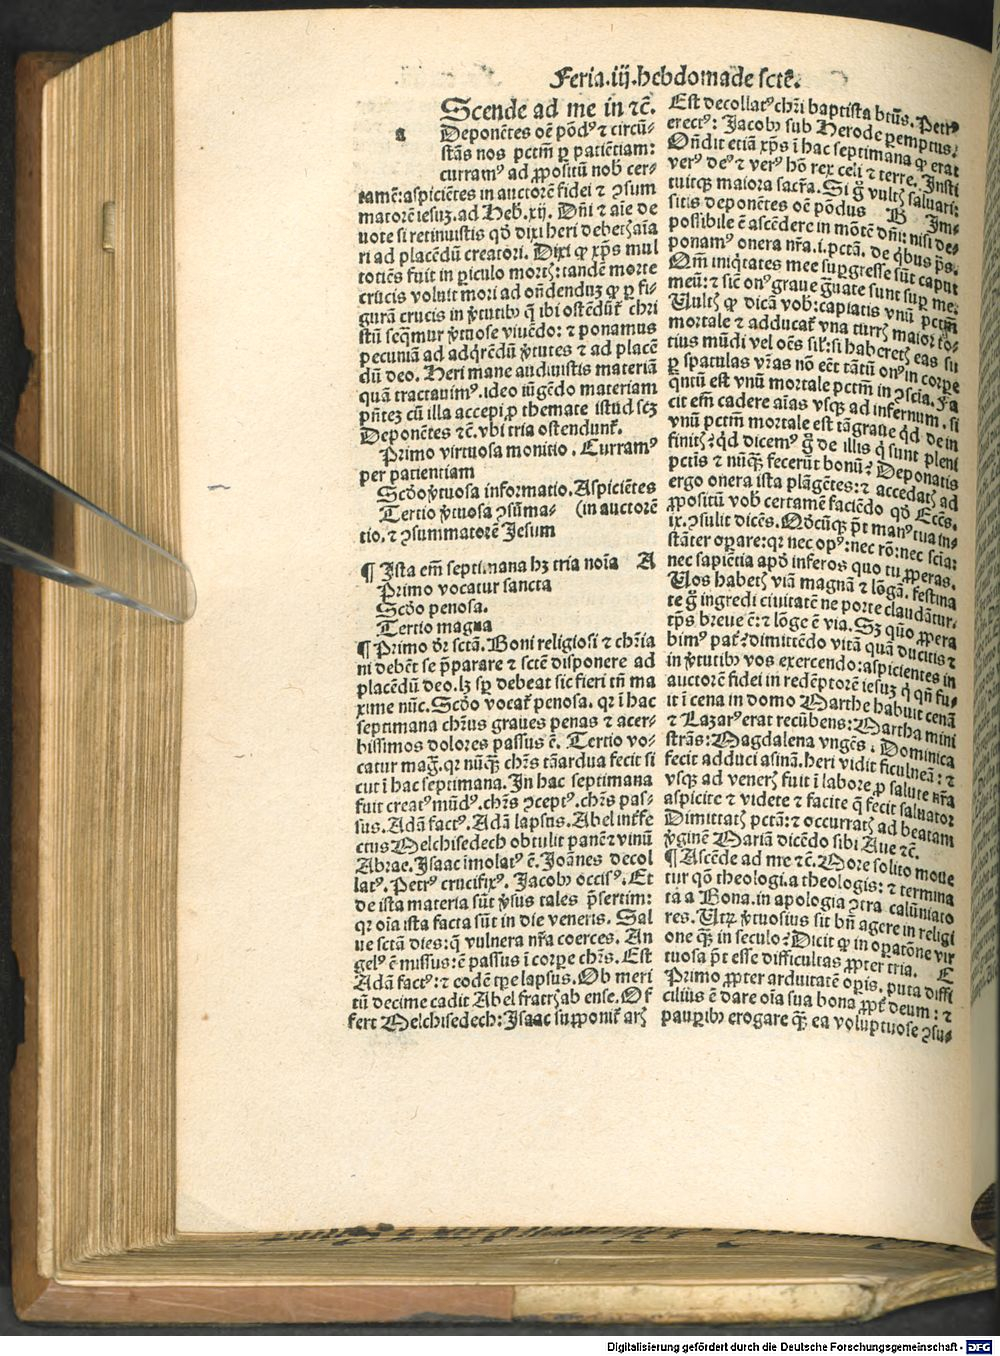 Feria.iij.hebdomade scte̅.
a
Scende ad me in ⁊c̅.
Depone̅tes oe̅ po̅dꝰ ⁊ circu̅-
sta̅s nos pctm̅ ꝑ patie̅tiam:
curramꝰ ad ꝓpositu̅ nob̅ cer-
tame̅:aspicie̅tes in auctore̅ fidei ⁊ ꝯsum
matore̅ iesuꝫ.ad Heb.xij. Dn̅i ⁊ ai̅e de
uote si retinuistis qd̅ dixi heri debetꝭ ai̅a
ri ad place̅du̅ creatori. Dixi ꝙ xp̅s mul
toties fuit in ꝑiculo mortꝭ:tande̅ morte
crucis voluit mori ad on̅denduꝫ ꝙ ꝑ fi-
gura̅ crucis in v̓tutibꝰ q̅ ibi oste̅du̅t̅ chr̅i
stu̅ seq̅mur v̓tuose viue̅do: ⁊ ponamus
pecunia̅ ad adq̅re̅du̅ v̓tutes ⁊ ad place̅
du̅ deo. Heri mane audiuistis materia̅
qua̅ tractauimꝰ.ideo iu̅ge̅do materiam
pn̅teꝫ cu̅ illa accepi ꝓ themate istud scꝫ
Depone̅tes ⁊c̅.vbi tria ostendunt̅.
Primo virtuosa monitio. Curramꝰ
per patientiam
Scd̅o v̓tuosa informatio.Aspicie̅tes
Tertio v̓tuosa ꝯsu̅ma- (in auctore̅
tio. ⁊ ꝯsummatore̅ Jesum
¶ Ista em̅ septimana hꝫ tria noi̅a A
Primo vocatur sancta
Scd̅o penosa.
Tertio magna
¶ Primo dr̅ scta̅. Boni religiosi ⁊ chr̅ia
ni debe̅t se p̅parare ⁊ scte̅ disponere ad
place̅du̅ deo.lꝫ sp̅ debeat sic fieri tn̅ ma
xime nu̅c. Scd̅o vocat̅ penosa. qꝛ i̅ hac
septimana chr̅us graues penas ⁊ acer-
bissimos dolores passus e̅. Tertio vo-
catur mag̅.qꝛ nu̅qꝫ chr̅s ta̅ ardua fecit si
cut i̅ hac septimana. In hac septimana
fuit creatꝰ mu̅dꝰ.chr̅s ꝯceptꝰ.chr̅s pas-
sus. Ada̅ factꝰ. Ada̅ lapsus. Abel int̅fe
ctus Melchisedech obtulit pane̅ ⁊ vinu̅
Abrae. Isaac i̅molatꝰ e̅. Joa̅nes decol
latꝰ. Petrꝰ crucifixꝰ. Jacobꝰ occisꝰ. Et
de ista materia su̅t v̓sus tales p̅sertim:
qꝛ oi̅a ista facta su̅t in die veneris. Sal
ue scta̅ dies:q̅ vulnera nr̅a coerces. An
gelꝰ e̅ missus:e̅ passus i̅ corpe chr̅s. Est
Ada̅ factꝰ:⁊ code̅ tp̅e lapsus. Ob meri
tu̅ decime cadit Abel fratrꝭ ab ense. Of
fert Melchisedech:Isaac supponit̅ arꝭ
Est decollatꝰ chr̅i baptista btu̅s. Petrꝰ
erectꝰ: Jacobꝰ sub Herode ꝑemptus.
On̅dit etia̅ xp̅s i̅ hac septimana ꝙ erat
verꝰ deꝰ ⁊ verꝰ ho̅ rex celi ⁊ terre. Insti
tuitqꝫ maiora sacr̅a. Si g̅ vultꝭ saluari:
sitis deponetes oe̅ po̅dus B Im-
possibile e̅ asce̅dere in mo̅te̅ dn̅i: nisi de-
ponamꝰ onera nr̅a.i.pcta̅. de q̅bus ps̅.
Qm̅ iniq̅tates mee suꝑgresse su̅t caput
meu̅: ⁊ sic̅ onꝰ graue g̅uate sunt suꝑ me.
Vultꝭ ꝙ dica̅ vob̅:capiatis vnu̅ pctm̅
mortale ⁊ adducat̅ vna turrꝭ maior to̅-
tius mu̅di vel oe̅s sil̅:si haberetꝭ eas su
ꝑ spatulas vr̅as no̅ ee̅t ta̅tu̅ onꝰ in corpe
qn̅tu̅ est vnu̅ mortale pctm̅ in ꝯscia. Fa
cit em̅ cadere ai̅as vsqꝫ ad infernum. si
vnu̅ pctm̅ mortale est ta̅ graue qd̅ de in
finitꝭ?qd̅ dicemꝰ g̅ de illis q̅ sunt pleni
pctis ⁊ nu̅qꝫ fecerunt bonu̅? Deponatis
ergo onera ista pla̅ge̅tes: ⁊ accedatꝭ ad
ꝓpositu̅ vob̅ certame̅ facie̅do qd̅ Ecc̅s.
ix.ꝯsulit dice̅s. Qd̅cu̅qꝫ p̅t manꝰ tua in-
sta̅ter oꝑare:qꝛ nec opꝰ:nec ro̅:nec scia̅:
nec sapie̅tia apd̅ inferos quo tu ꝓperas.
Vos habetꝭ via̅ magna̅ ⁊ lo̅ga̅. festina
te g̅ ingredi ciuitate̅ ne porte clauda̅tur.
tp̅s breue e̅: ⁊ lo̅ge e̅ via. Sꝫ quo̅ ꝓpera
bimꝰ pat̅?dimitte̅do vita̅ qua̅ ducitis ⁊
in v̓tutibꝰ vos exercendo:aspicientes in
auctore̅ fidei in rede̅ptore̅ iesuꝫ q̅ qn̅ fu-
it i̅ cena in domo Marthe habuit cena̅
⁊ Lazarꝰ erat recu̅bens:Martha mini
stra̅s:Magdalena vnge̅s. Dominica
fecit adduci asina̅.heri vidit ficulnea̅: ⁊
vsqꝫ ad venerꝭ fuit i̅ labore ꝓ salute nr̅a
aspicite ⁊ videte ⁊ facite q̅ fecit saluator
Dimittatꝭ pcta̅: ⁊ occurratꝭ ad beatam
v̓gine̅ Maria̅ dice̅do sibi Aue ⁊c̅.
¶ Asce̅de ad me ⁊c̅. More solito moue
tur qo̅ theologi.a theologis: ⁊ termina
ta a Bona.in apologia ꝯtra calu̅niato
res. Utrꝫ v̓tuosius sit bn̅ agere in religi
one qꝫ in seculo? Dicit ꝙ in oꝑato̅ne vir
tuosa p̅t esse difficultas ꝓpter tria. E
Primo ꝓpter arduitate̅ oꝑis. puta diffi
cilius e̅ dare oi̅a sua bona ꝓpt̅ deum: ⁊
pauꝑibꝰ erogare qꝫ ea voluptuose ꝯsu-
Digitalisierung gefördert durch die Deutsche Forschungsgemeinschaft - DFG